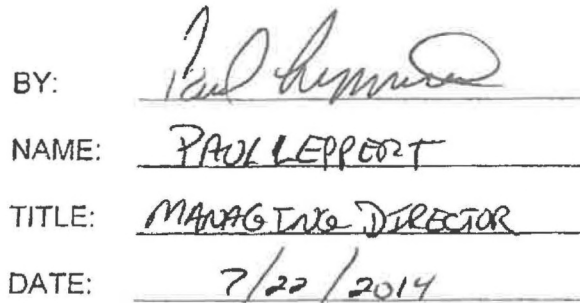 BY: Paul
NAME: PAUL LEPPERT
TITLE: MANAGING DIRECTOR
DATE: 7/22/2014